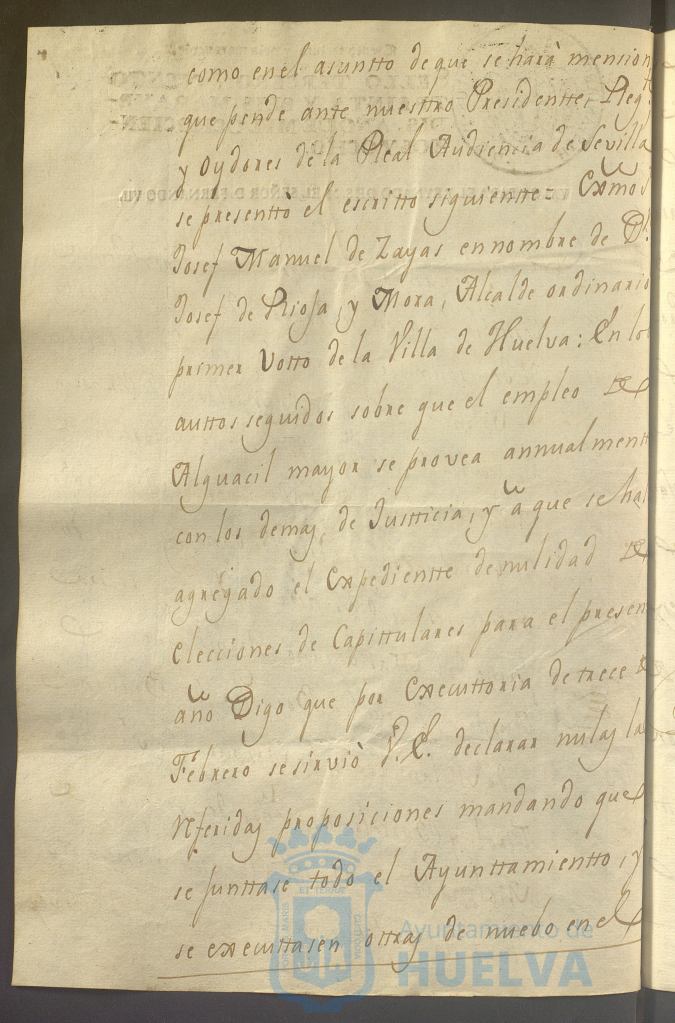 como en el asuntto de que se harà mension
que pende ante nuesttro Presidentte, Reg.te
y Oydores de la Real Audiencia de Sevilla
se presenttò el escritto siguientte = Exmo S
Josef Manuel de Zayas en nombre de D.n
Josef de Rioja, y Mora, Alcalde ordinario
primer Votto de la Villa de Huelva: En los
auttos seguidos sobre que el empleo de
Alguacil mayor se provea annualmentt
con los demas, de Justticia, y à que se ha
agregado el Expedientte de nulidad de
elecciones de Capittulares para el presen
año Digo que por Executtoria de trece de
Febrero se sirviò V.E. declarar nulas la
referidas proposiciones mandando que
se junttase todo el Ayunttamientto, y
se executtasen ottras de nuebo en el
Ayuntamiento de
HUELVA